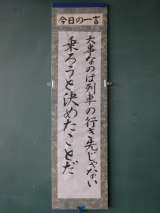 今日の一言
大事なのは列車の行き先じゃない
乗ろうと決めたことだ